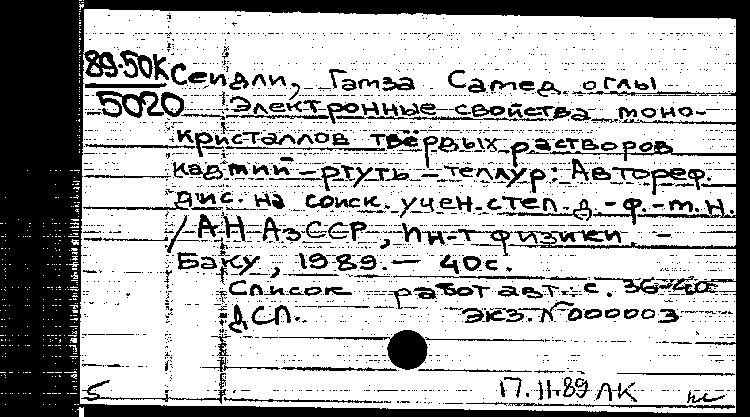 89-50К
5020
Сеидли, Гамза Самед оглы
Электронные свойства моно-
кристаллов твёрдых растворов
кадмий-ртуть-теллур: Автореф.
дис. на соиск. учен. степ. д.-ф.-м.н.
/АН АзССР, Ин-т физики. -
Баку, 1989. - 40с.
Список работ авт. с. 36-40
ДСП. экз. № 000003
5 17.11.89 ЛК